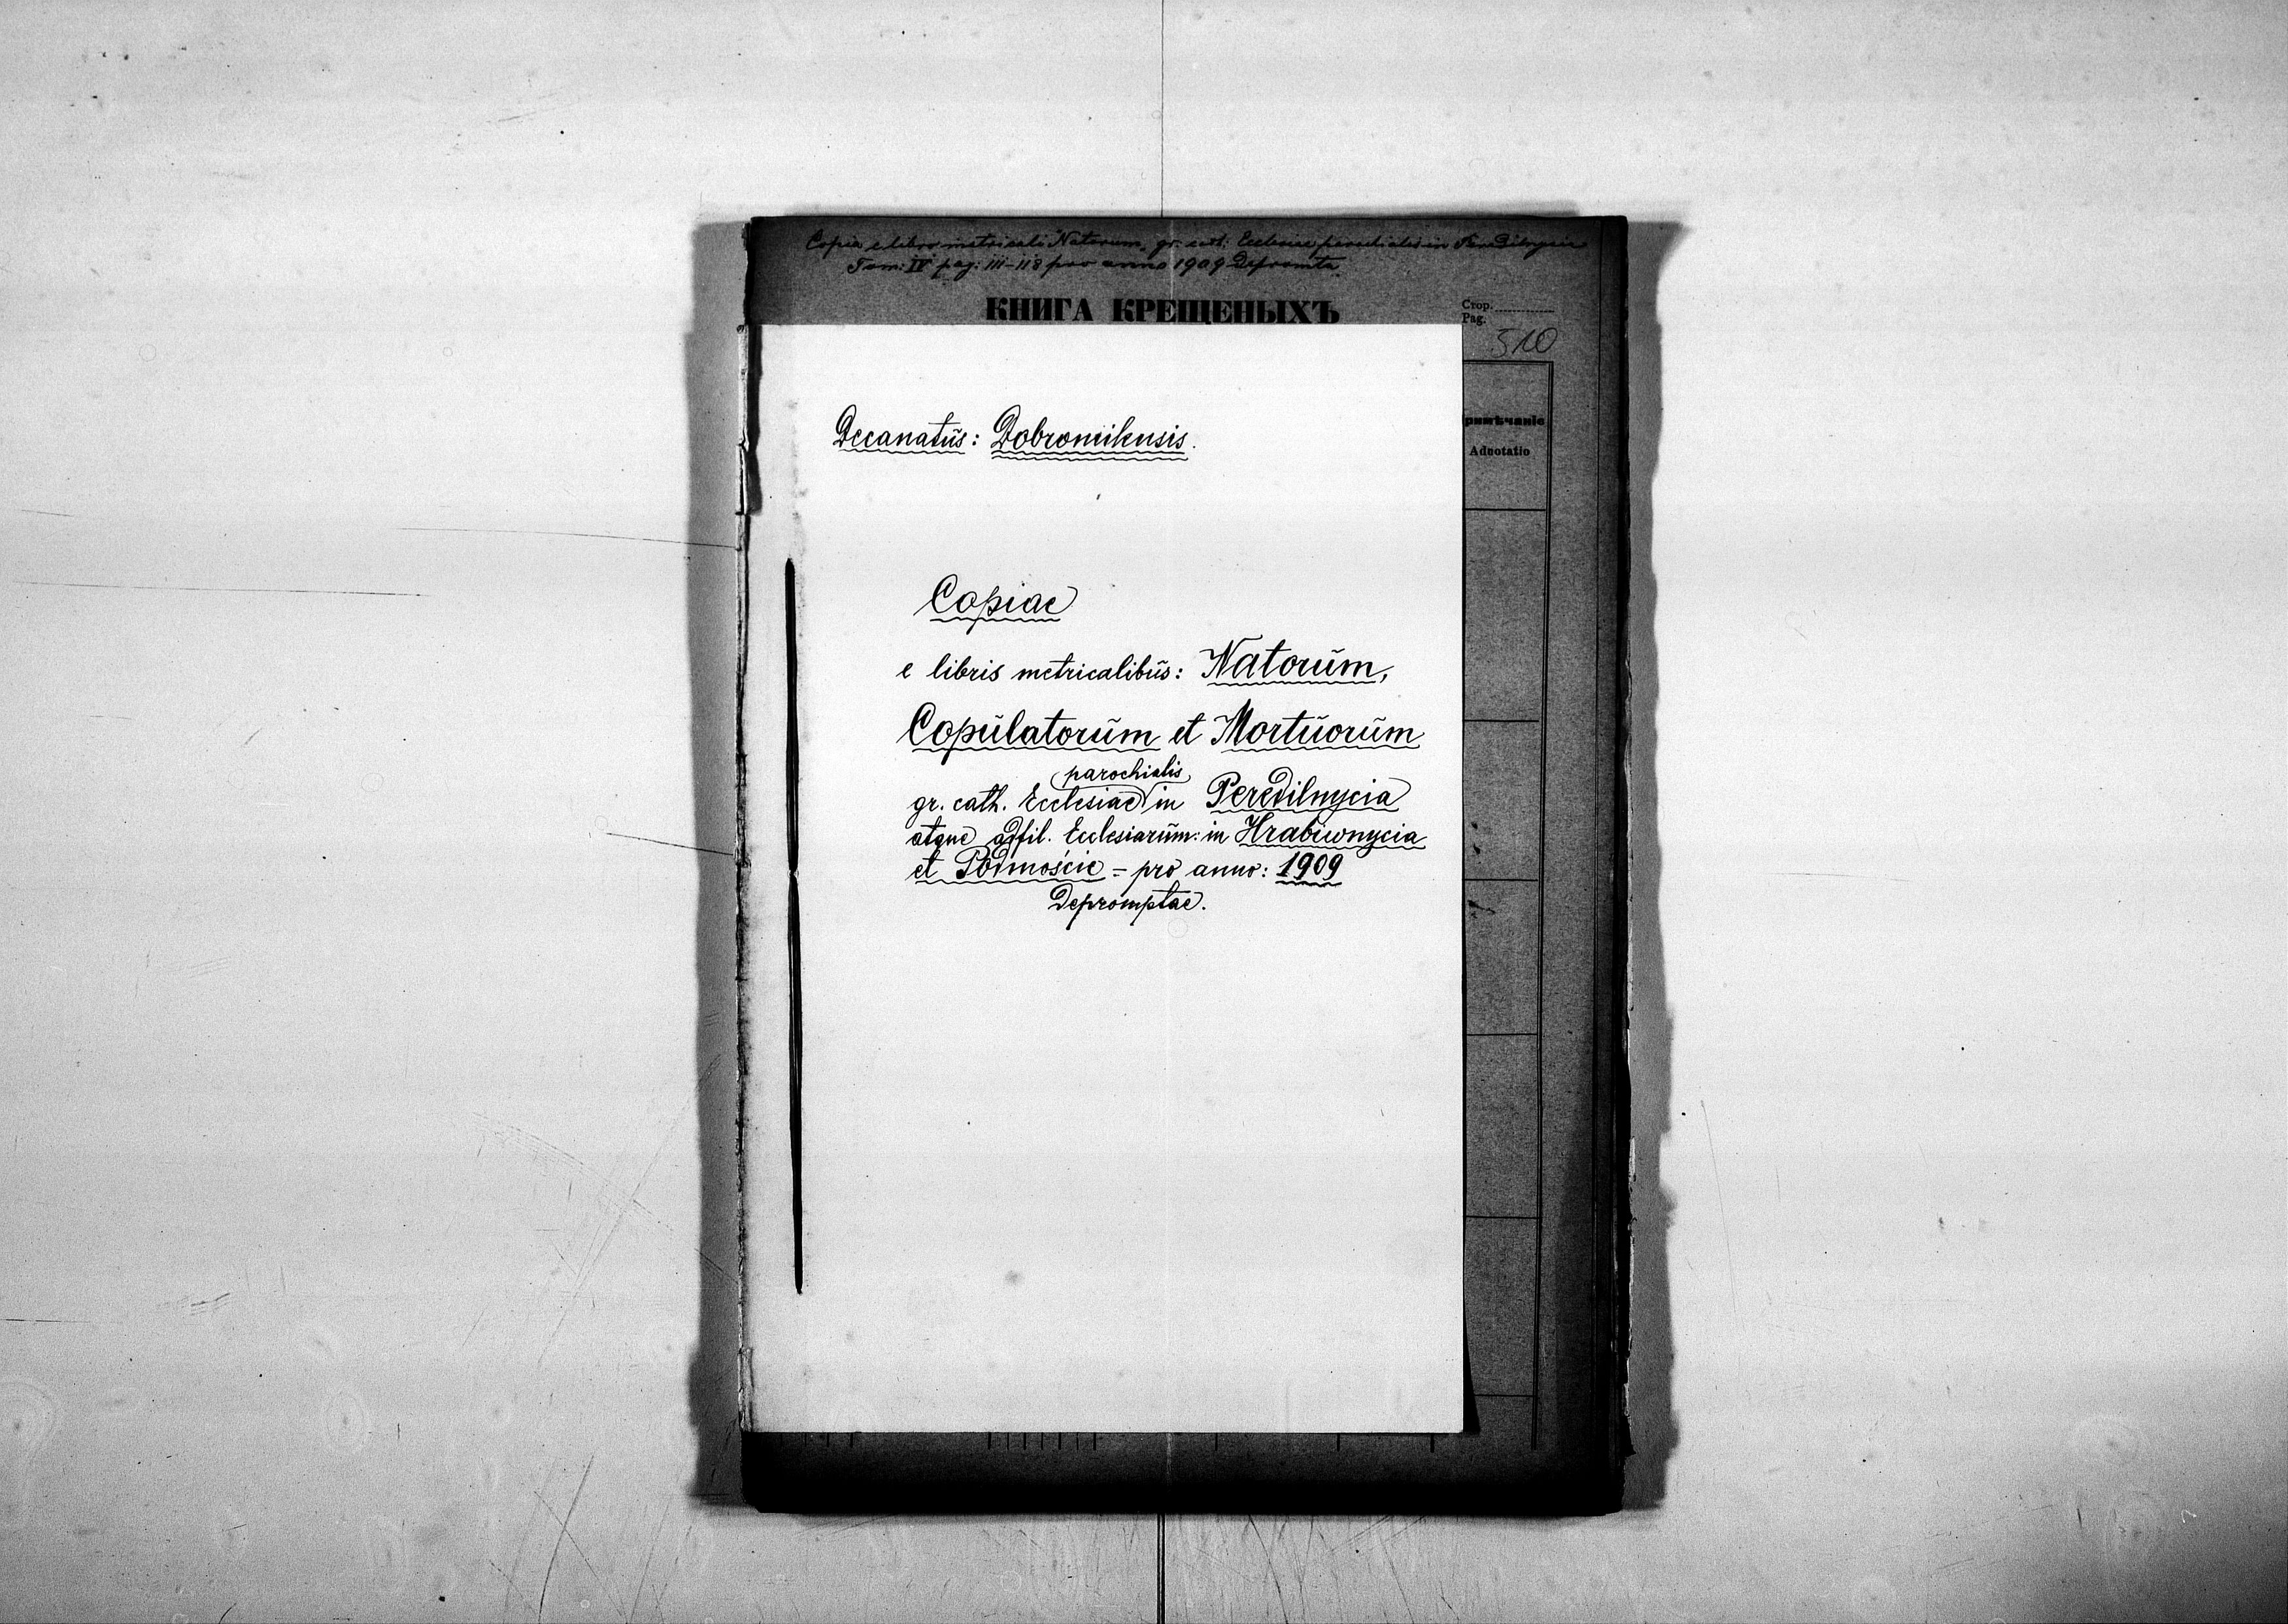 Copia e libro metricali "Natorum" gr. cat: Ecclesiae parochialis in Peredilnycia
Tom: IV pag: 111-118 pro anno 1909 Depromta
КНИГА КРЕЩЕНЫХЪ
Стор.
Pag.
310
римѣчаніе
Adnotatio
Decanatŭs: Dobromilensis.
Copiae
e libris metricalibŭs: Natorŭm,
Copŭlatorŭm et Mortŭorŭm
parochialis
gr. cath. Ecclesiae in Peredilnycia
atque affil. Ecclesiarŭm: in Hrabiwnycia
et Podmoście = pro anno: 1909
Depromptae.